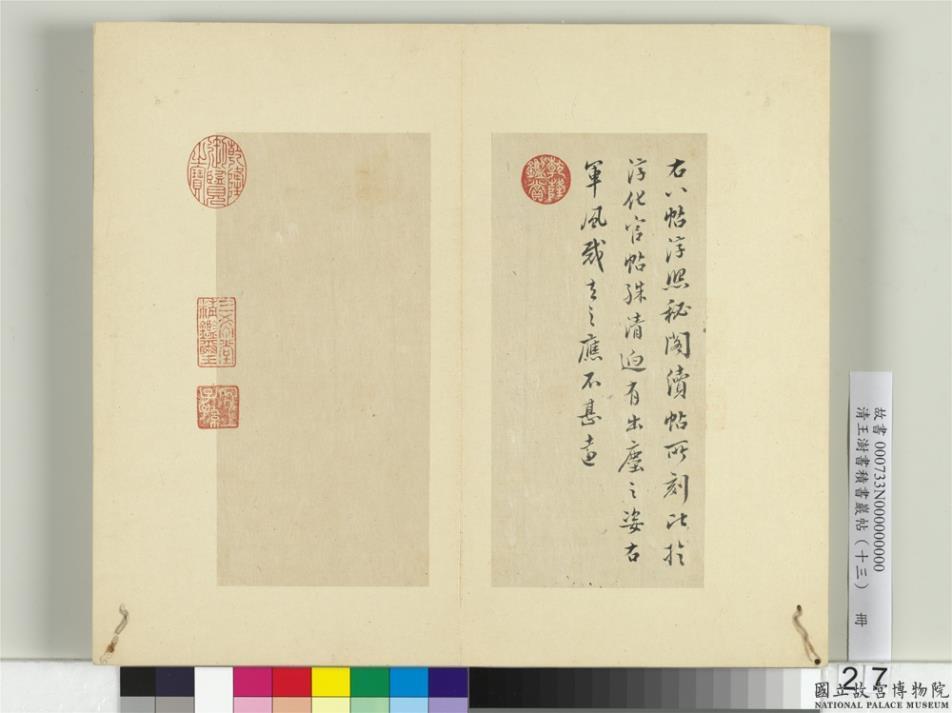 右八帖淳熙秘閣續帖所刻比於
淳化官帖殊清迥有出塵之姿右
軍風裁去之應不甚遠
乾隆鑑賞
乾隆御覽之寶
三希堂精鑑璽
宜子孫
故書 000733N000000000
清王澍書積書巖帖(十三) 冊
27
國立故宮博物院
NATIONAL PALACE MUSEUM